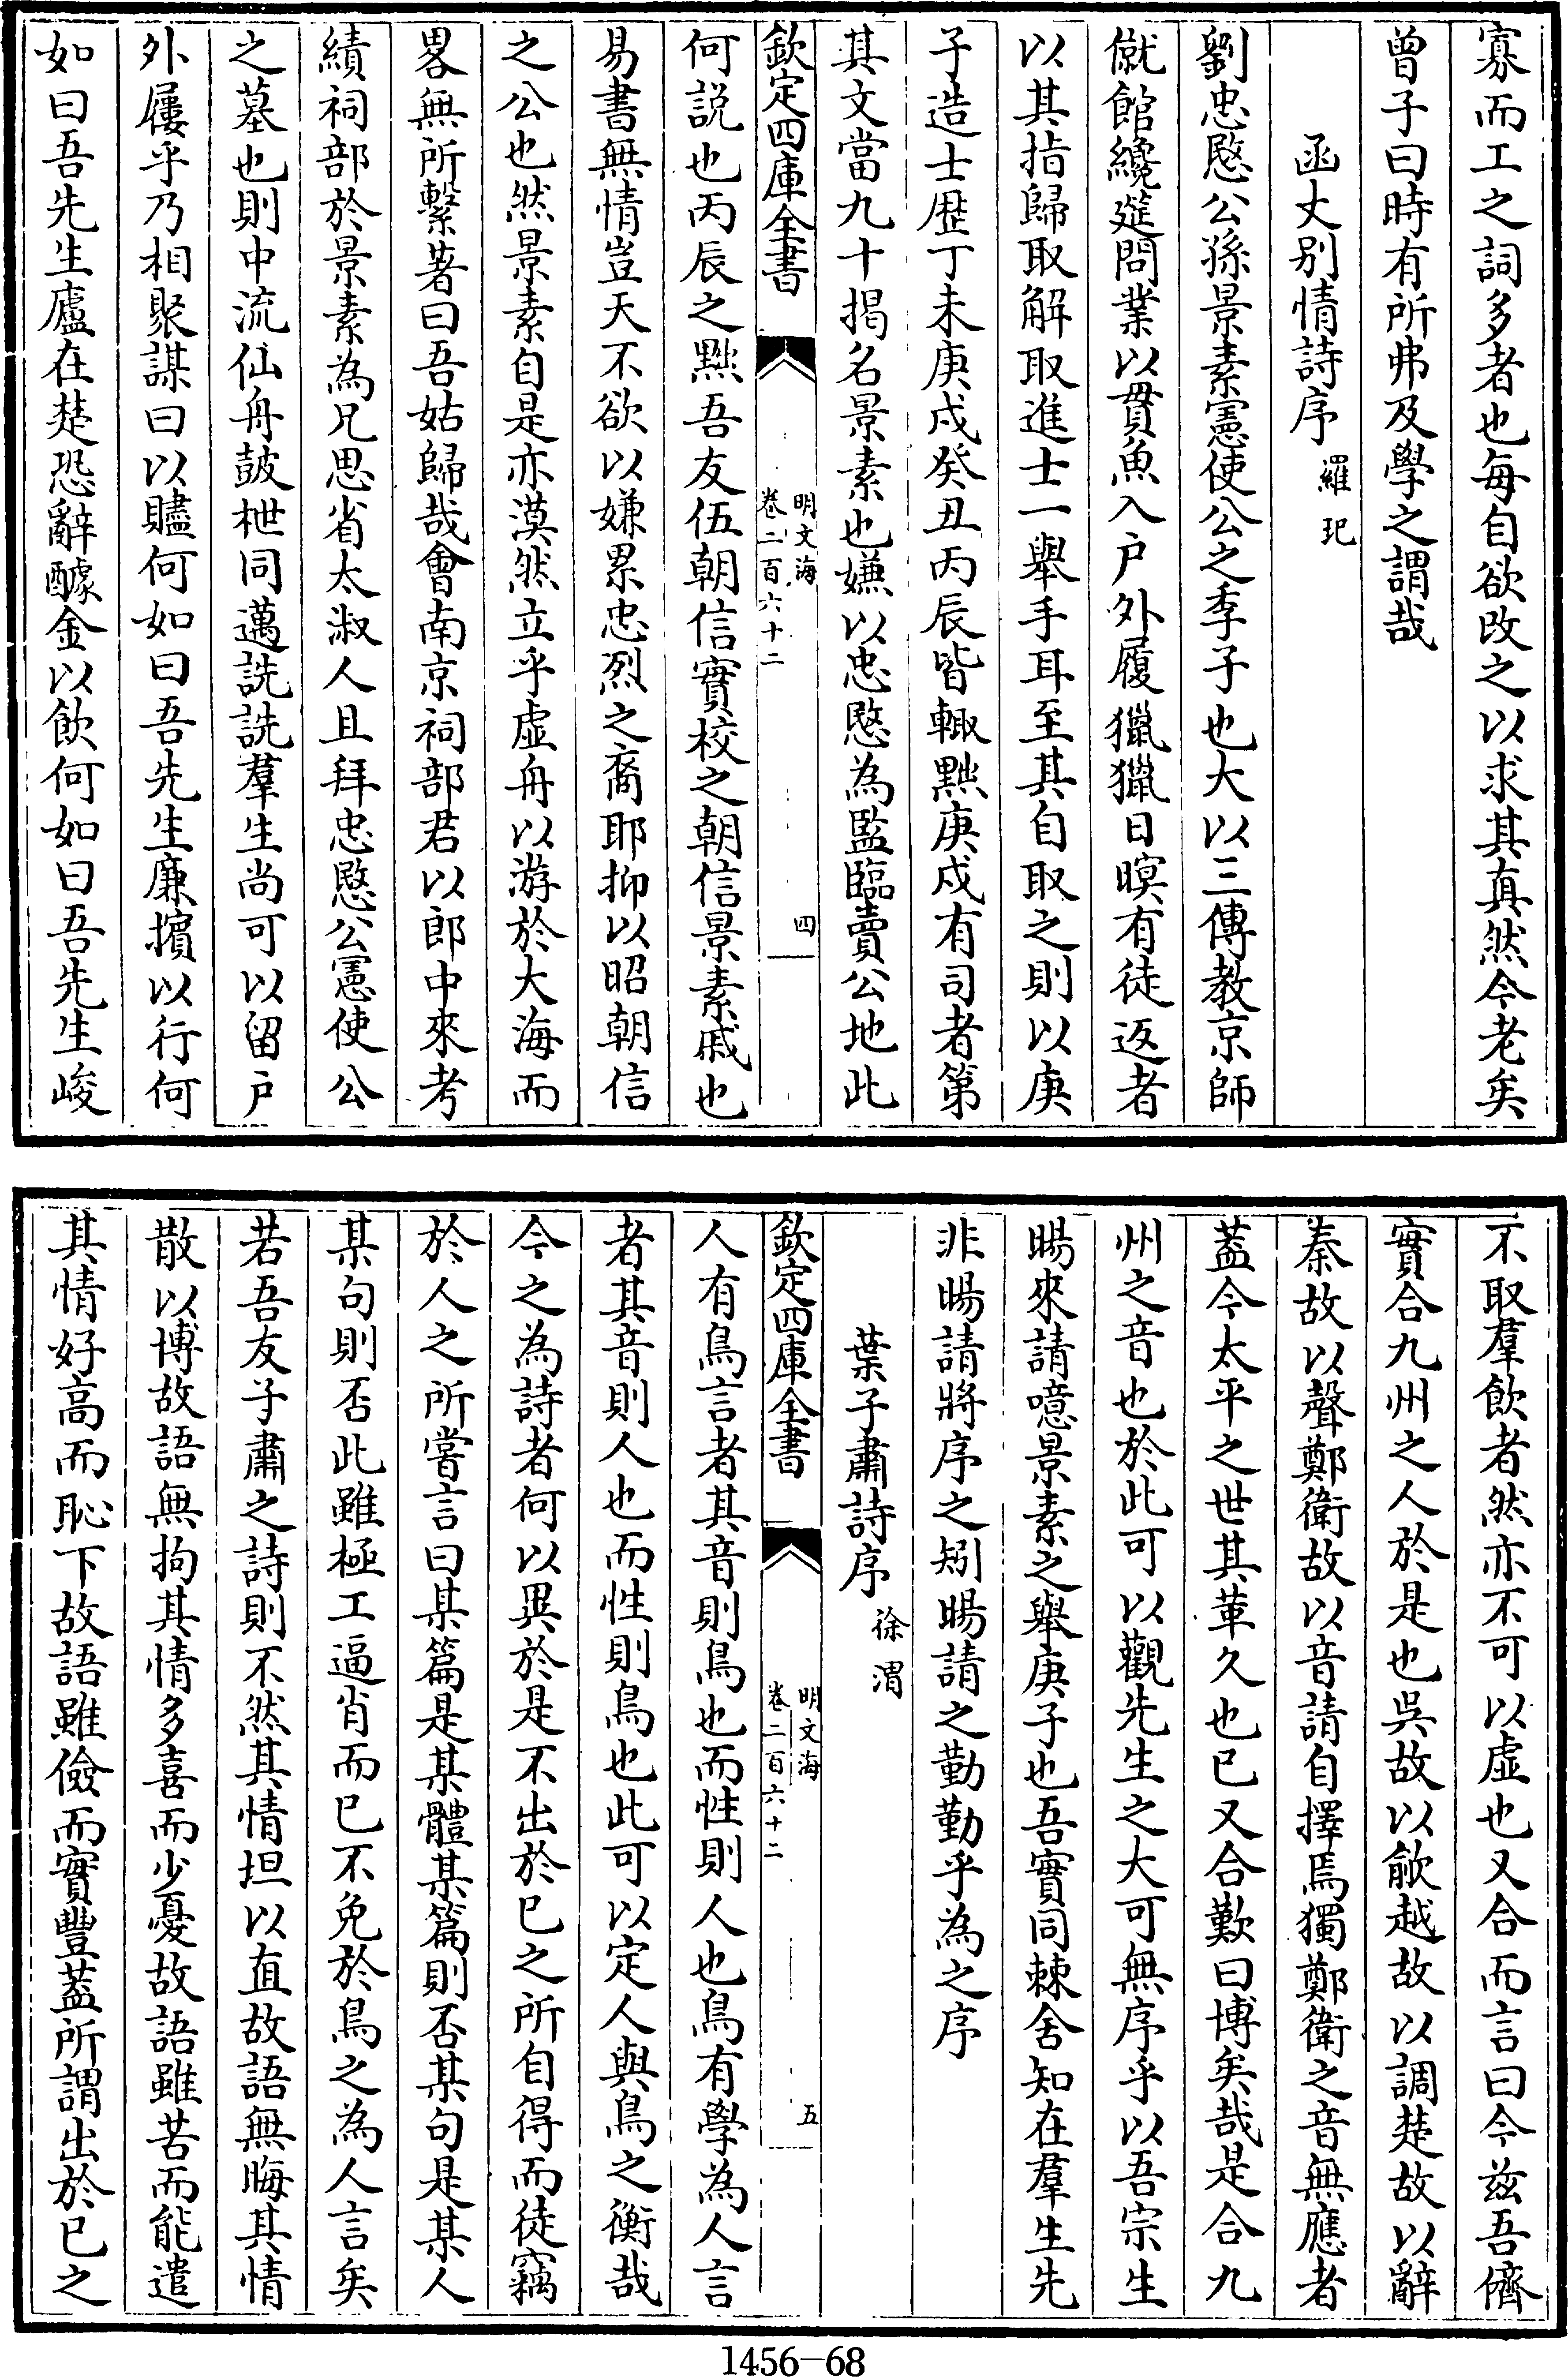 寡而工之詞多者也每自欲改之以求其真然今老矣
曾子曰時有所弗及學之謂哉
函丈别情詩序 羅玘
劉忠愍公孫景素憲使公之季子也大以三傳教京師
僦館纔筵問業以貫魚入户外履獵獵日暝有徒返者
以其指歸取解取進士一舉手耳至其自取之則以庚
子造士歴丁未庚戍癸丑丙辰皆輙黜庚戍有司者第
其文當九十揭名景素也嫌以忠愍為監臨賣公地此
欽定四庫全書
明文海
卷二百六十二
四
何説也丙辰之黜吾友伍朝信實校之朝信景素戚也
易書無情豈天不欲以嫌累忠烈之裔耶抑以昭朝信
之公也然景素自是亦漠然立乎虚舟以游於大海而
畧無所繫著曰吾姑歸哉會南京祠部君以郎中來考
績祠部於景素為兄思省太淑人且拜忠愍公憲使公
之墓也則中流仙舟皷枻同邁詵詵羣生尚可以留户
外屨乎乃相聚謀曰以贐何如曰吾先生廉擯以行何
如曰吾先生廬在楚恐辭醵金以飲何如曰吾先生峻
不取羣飲者然亦不可以虚也又合而言曰今兹吾儕
實合九州之人於是也吳故以歈越故以調楚故以辭
秦故以聲鄭衛故以音請自擇焉獨鄭衛之音無應者
葢今太平之世其革久也已又合歎曰博矣哉是合九
州之音也於此可以觀先生之大可無序乎以吾宗生
暘來請噫景素之舉庚子也吾實同棘舍知在羣生先
非暘請將序之矧暘請之勤勤乎為之序
葉子肅詩序 徐渭
欽定四庫全書
明文海
卷二百六十二
五
人有鳥言者其音則鳥也而性則人也鳥有學為人言
者其音則人也而性則鳥也此可以定人與鳥之衡哉
今之為詩者何以異於是不出於已之所自得而徒竊
於人之所嘗言曰某篇是某體某篇則否某句是某人
某句則否此雖極工逼肖而已不免於鳥之為人言矣
若吾友子肅之詩則不然其情坦以直故語無晦其情
散以博故語無拘其情多喜而少憂故語雖苦而能遣
其情好高而恥下故語雖儉而實豐葢所謂出於已之
1456—68